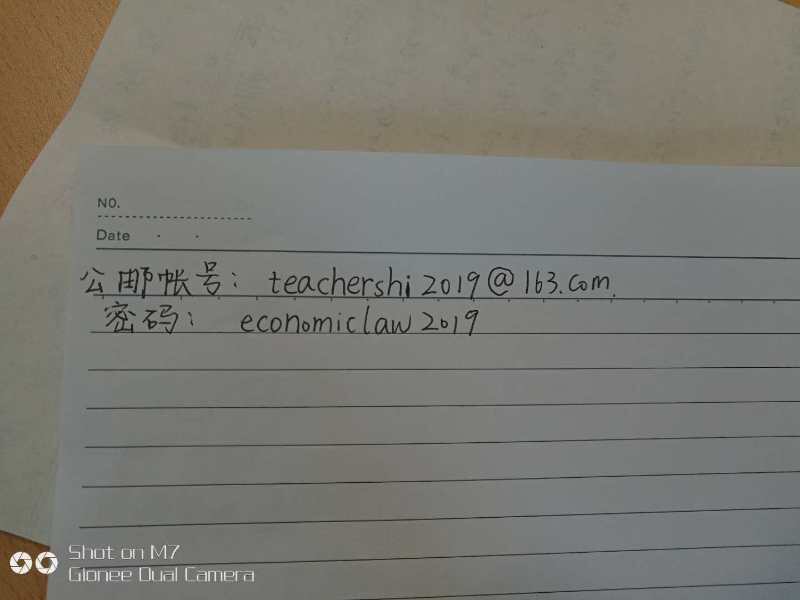 NO.
Date
公邮帐号: teachershi2019@163.com
密码: economiclaw2019
Shot on M7
Gionee Dual Camera